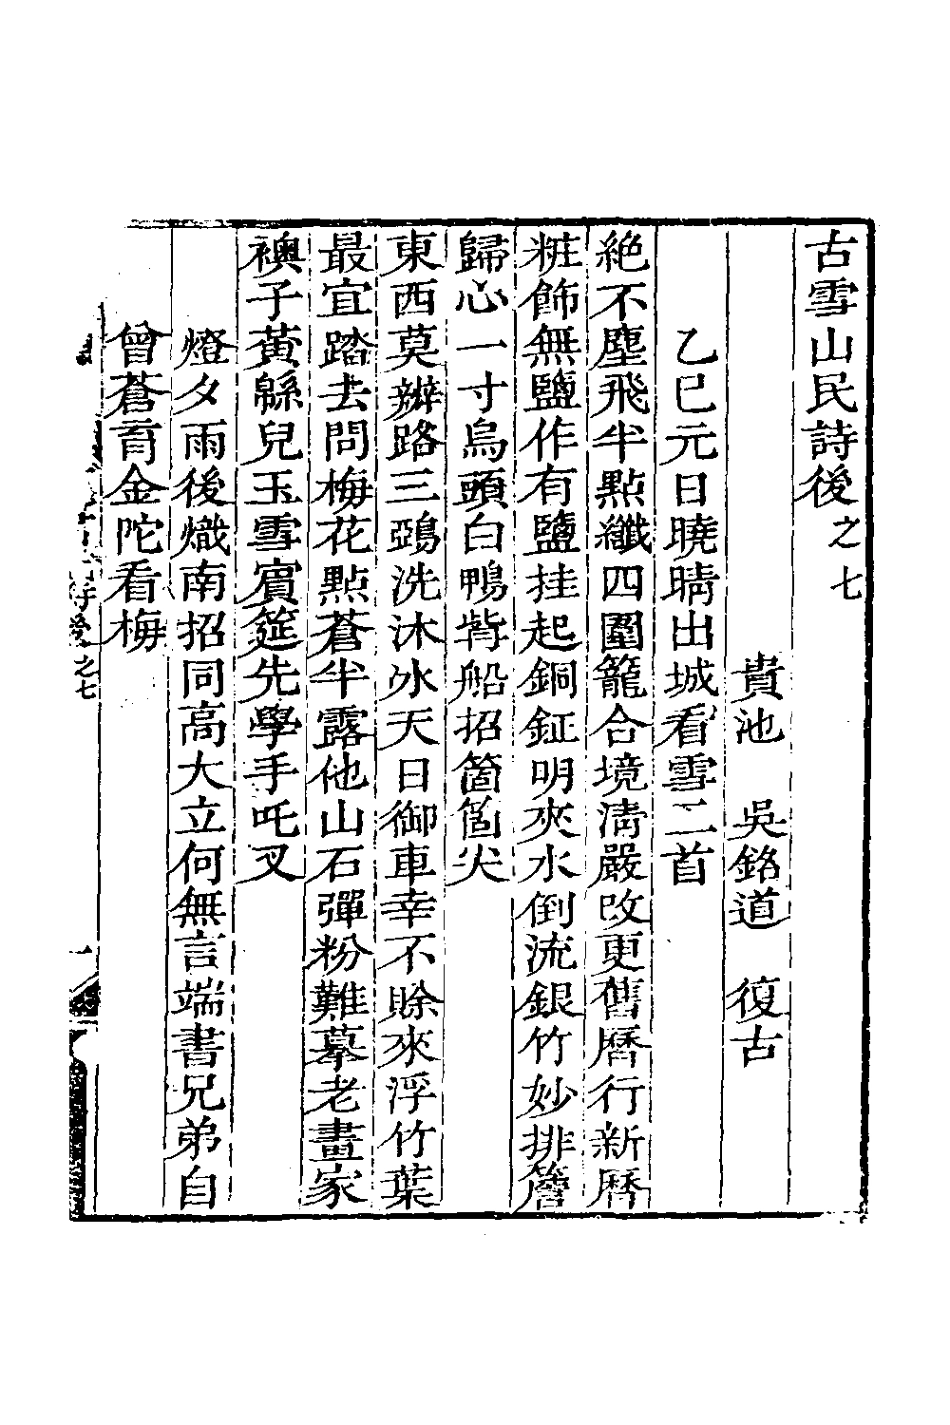 古雪山民詩後之七
貴池　吳銘道　復古
乙巳元日曉晴出城看雪二首
絕不塵飛半點纖四圍籠合境淸嚴改更舊曆行新曆
粧飾無鹽作有鹽挂起銅鉦明夾水倒流銀竹妙排簷
歸心一寸烏頭白鴨觜船招箇箇尖
東西莫辨路三鵶洗沐冰天日御車幸不賒來浮竹葉
最宜踏去問梅花點蒼半露他山石彈粉難摹老畫家
襖子黃緜兒玉雪賓筵先學手叱叉
燈夕雨後熾南招同高大立何無言端書兄弟自
曾蒼育金陀看梅
之七
一